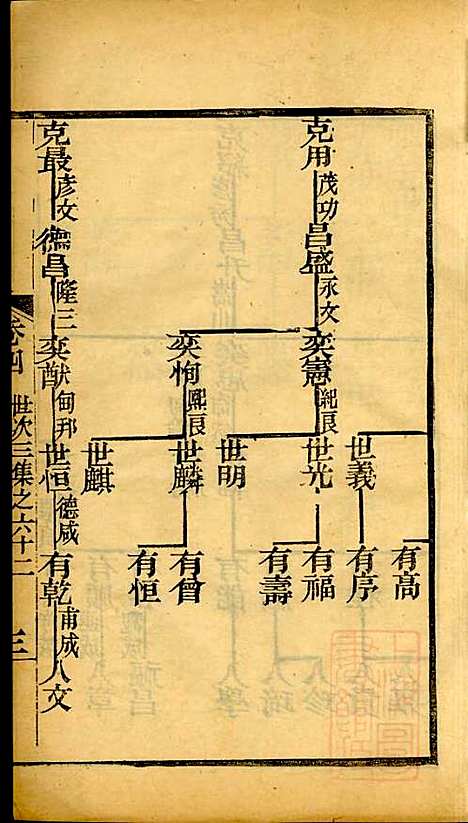 克用茂功昌盛永文奕憲紀辰世光有福
世義有序
有高
有壽
世明
奕恂熙辰世麟有曾
有恒
世麒
克最彥文德昌隆三奕猷甸邦世恒德咸有乾甫成人文
卷四 世次三集之六十二 三